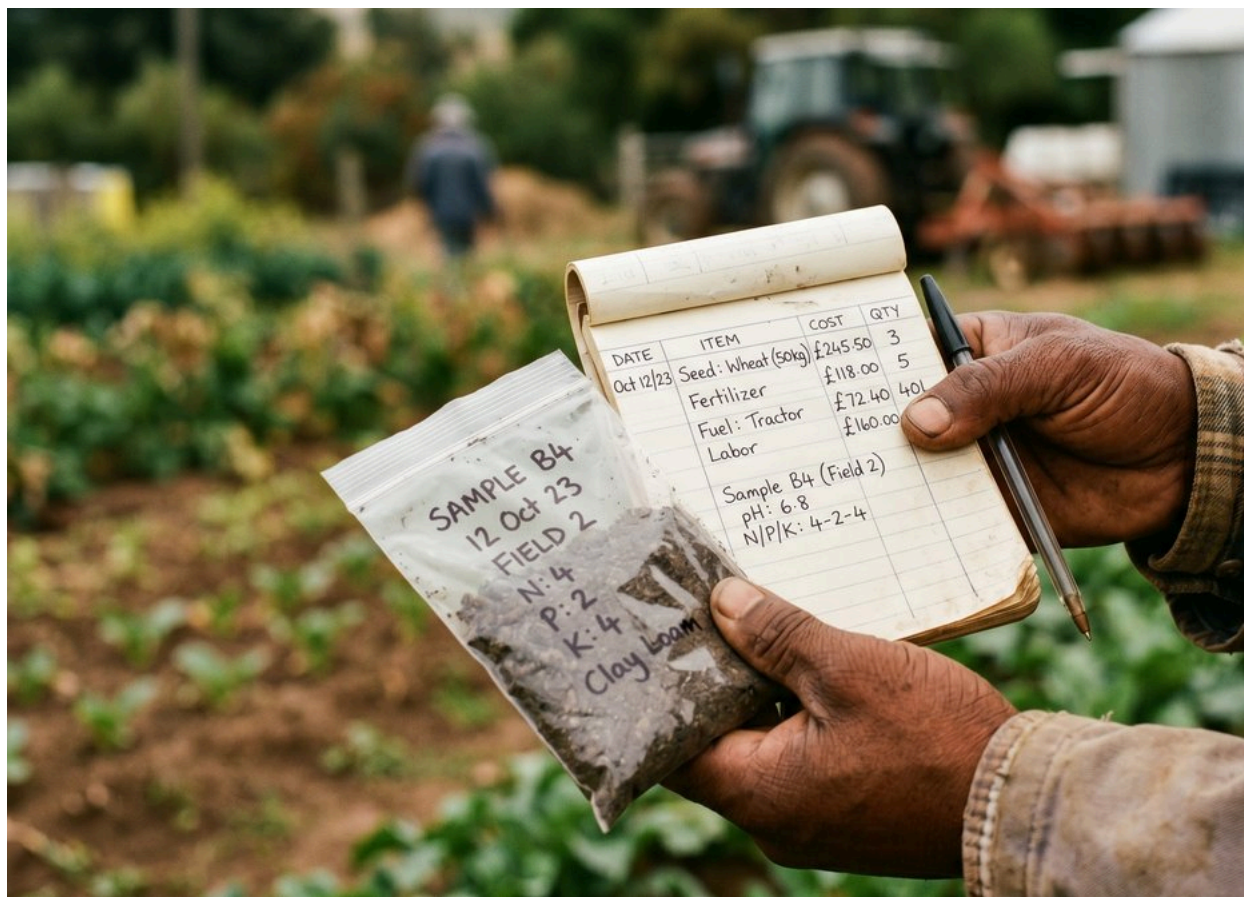 SAMPLE B4
12 Oct 23
FIELD 2
N: 4
P: 2
K: 4
Clay Loam
DATE ITEM COST QTY
Oct 12/23 Seed: Wheat (50kg) £245.50 3
Fertilizer £118.00 5
Fuel: Tractor £72.40 40L
Labor £160.00
Sample B4 (Field 2)
pH: 6.8
N/P/K: 4-2-4